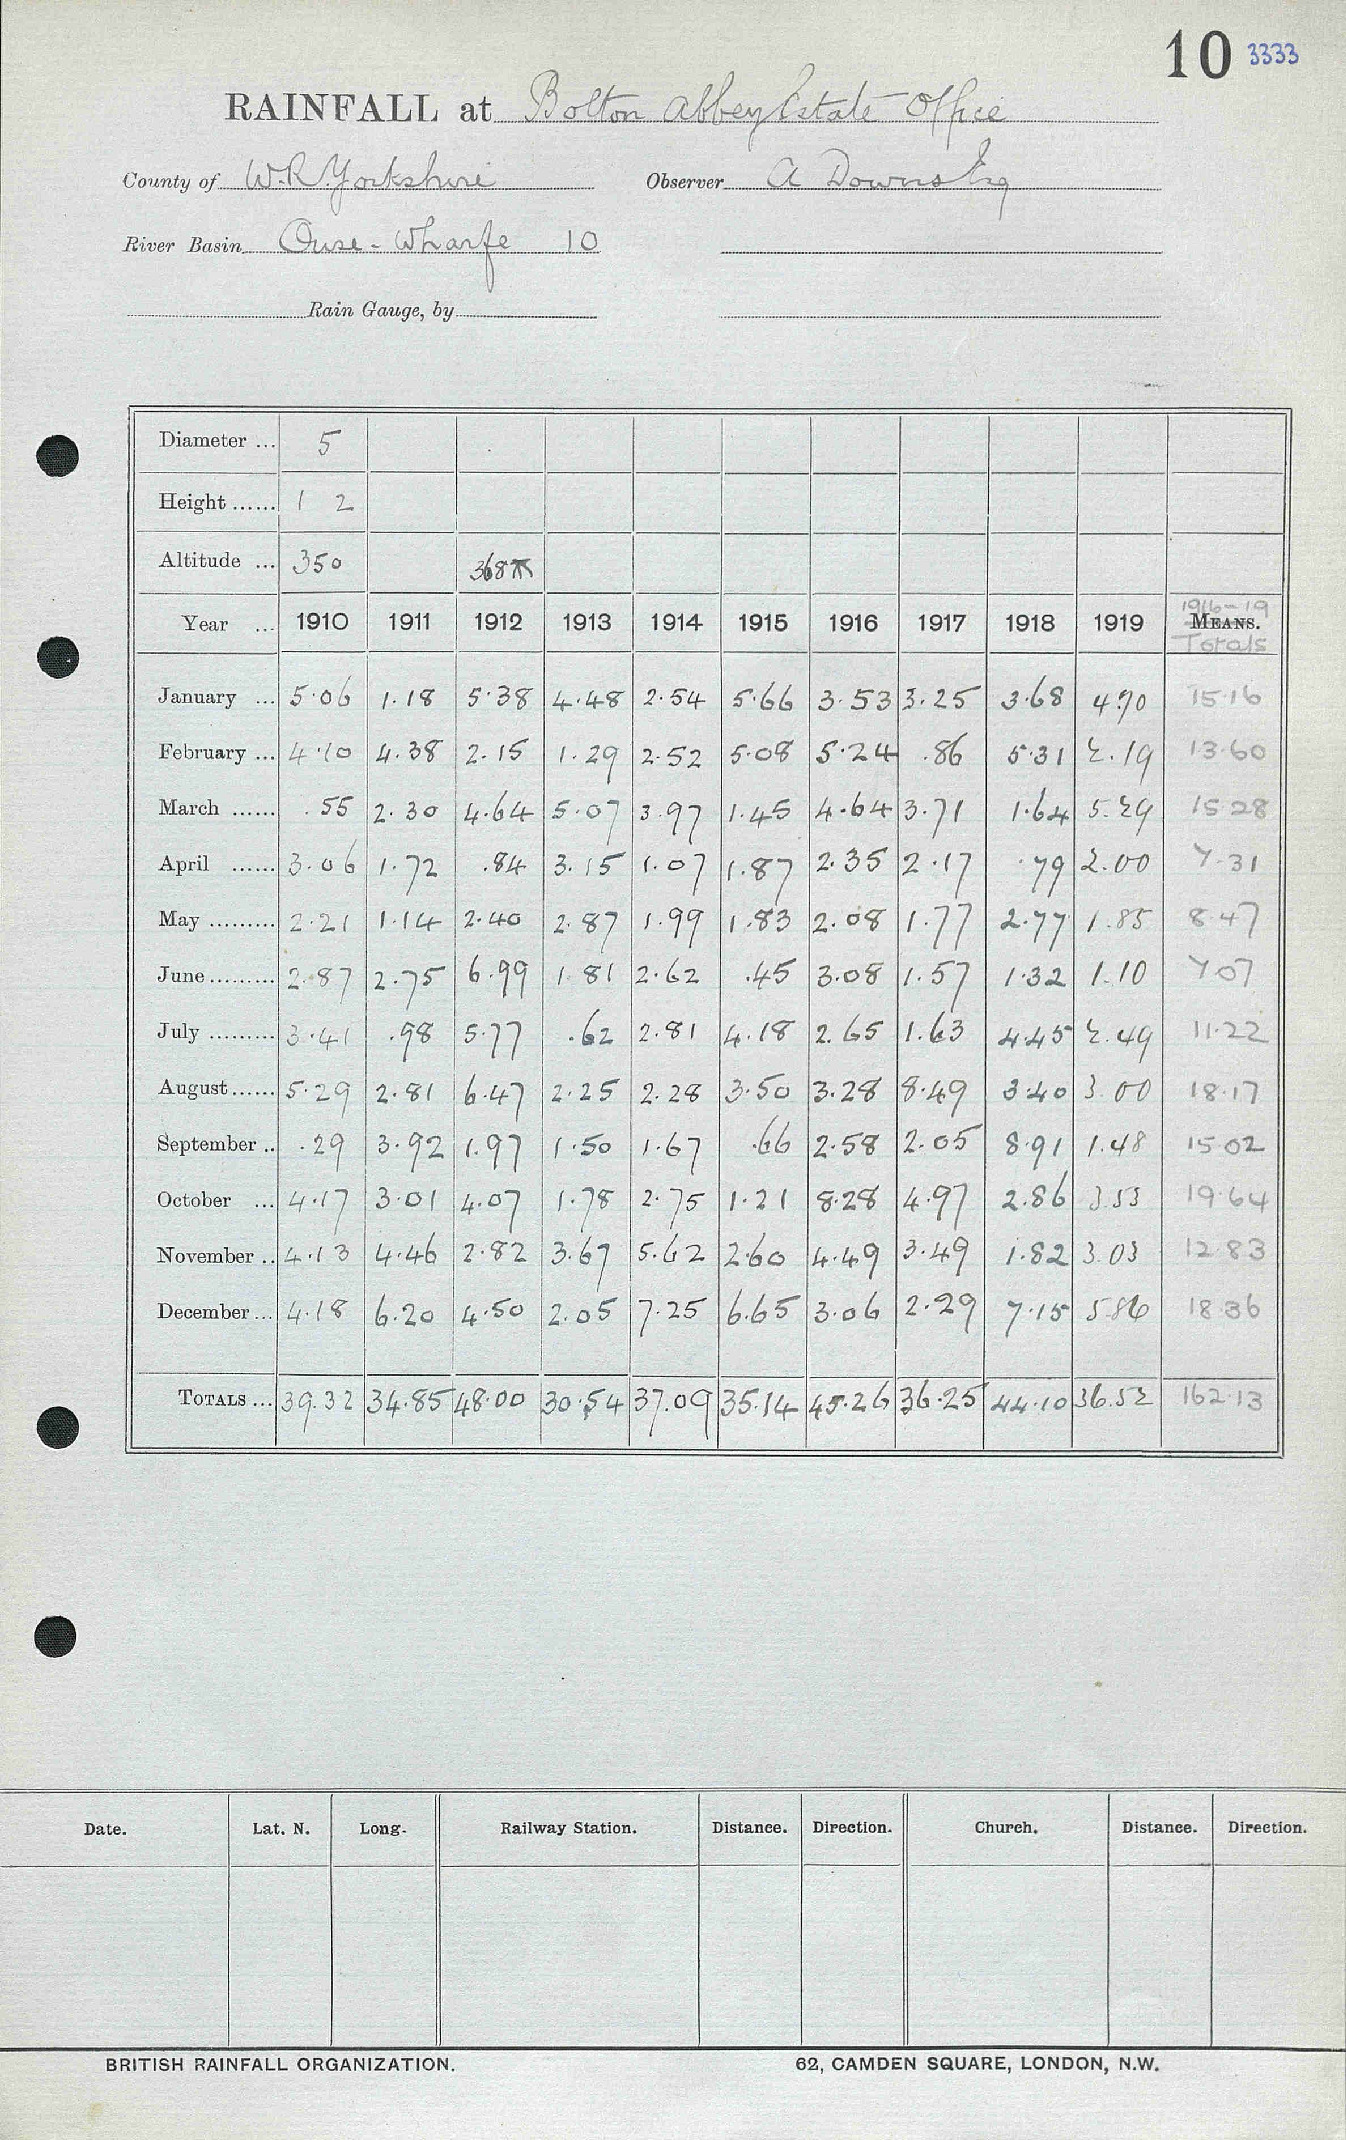 10 3333
RAINFALL at Bolton Abbey Estate Office
County of W.R. Yorkshire Observer A Downs Esq
River Basin Ouse - Wharfe 10
Rain Gauge, by
Diameter ... 5
Height ...... 1 2
Altitude ... 350 368
1916-19
Year ... 1910 1911 1912 1913 1914 1915 1916 1917 1918 1919 MEANS.
Totals
January ... 5.06 1.18 5.38 4.48 2.54 5.66 3.53 3.25 3.68 4.70 15.16
February ... 4.10 4.38 2.15 1.29 2.52 5.08 5.24 .86 5.31 2.19 13.60
March ...... .55 2.30 4.64 5.07 3.97 1.45 4.64 3.71 1.64 5.29 15.28
April ...... 3.06 1.72 .84 3.15 1.07 1.87 2.35 2.17 .79 2.00 7.31
May ......... 2.21 1.14 2.40 2.87 1.99 1.83 2.08 1.77 2.77 1.85 8.47
June ......... 2.87 2.75 6.99 1.81 2.62 .45 3.08 1.57 1.32 1.10 7.07
July ......... 3.41 .98 5.77 .62 2.81 4.18 2.65 1.63 4.45 2.49 11.22
August ...... 5.29 2.81 6.47 2.25 2.28 3.50 3.28 8.49 3.40 3.00 18.17
September .. .29 3.92 1.97 1.50 1.67 .66 2.58 2.05 8.91 1.48 15.02
October ... 4.17 3.01 4.07 1.78 2.75 1.21 8.28 4.97 2.86 3.53 19.64
November .. 4.13 4.46 2.82 3.67 5.62 2.60 4.49 3.49 1.82 3.03 12.83
December ... 4.18 6.20 4.50 2.05 7.25 6.65 3.06 2.29 7.15 5.86 18.36
TOTALS ... 39.32 34.85 48.00 30.54 37.09 35.14 45.26 36.25 44.10 36.52 162.13
Date. Lat. N. Long. Railway Station. Distance. Direction. Church. Distance. Direction.
BRITISH RAINFALL ORGANIZATION. 62, CAMDEN SQUARE, LONDON, N.W.